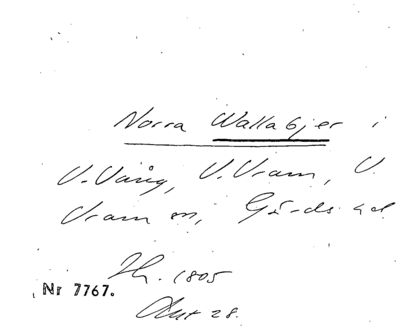 Norra Wallabjer i
V. Vång, V. Vram, V.
Vram sn, Gärds hd
Hs. 1805
Nr 7767.
Akt 28.